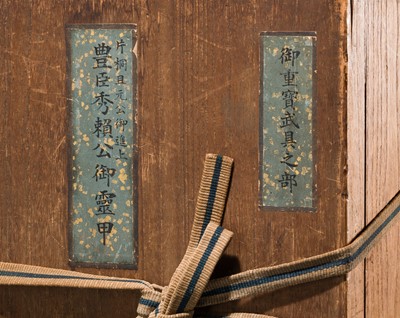 御重寶武具之部
片桐且元公御進上
豊臣秀頼公御靈甲